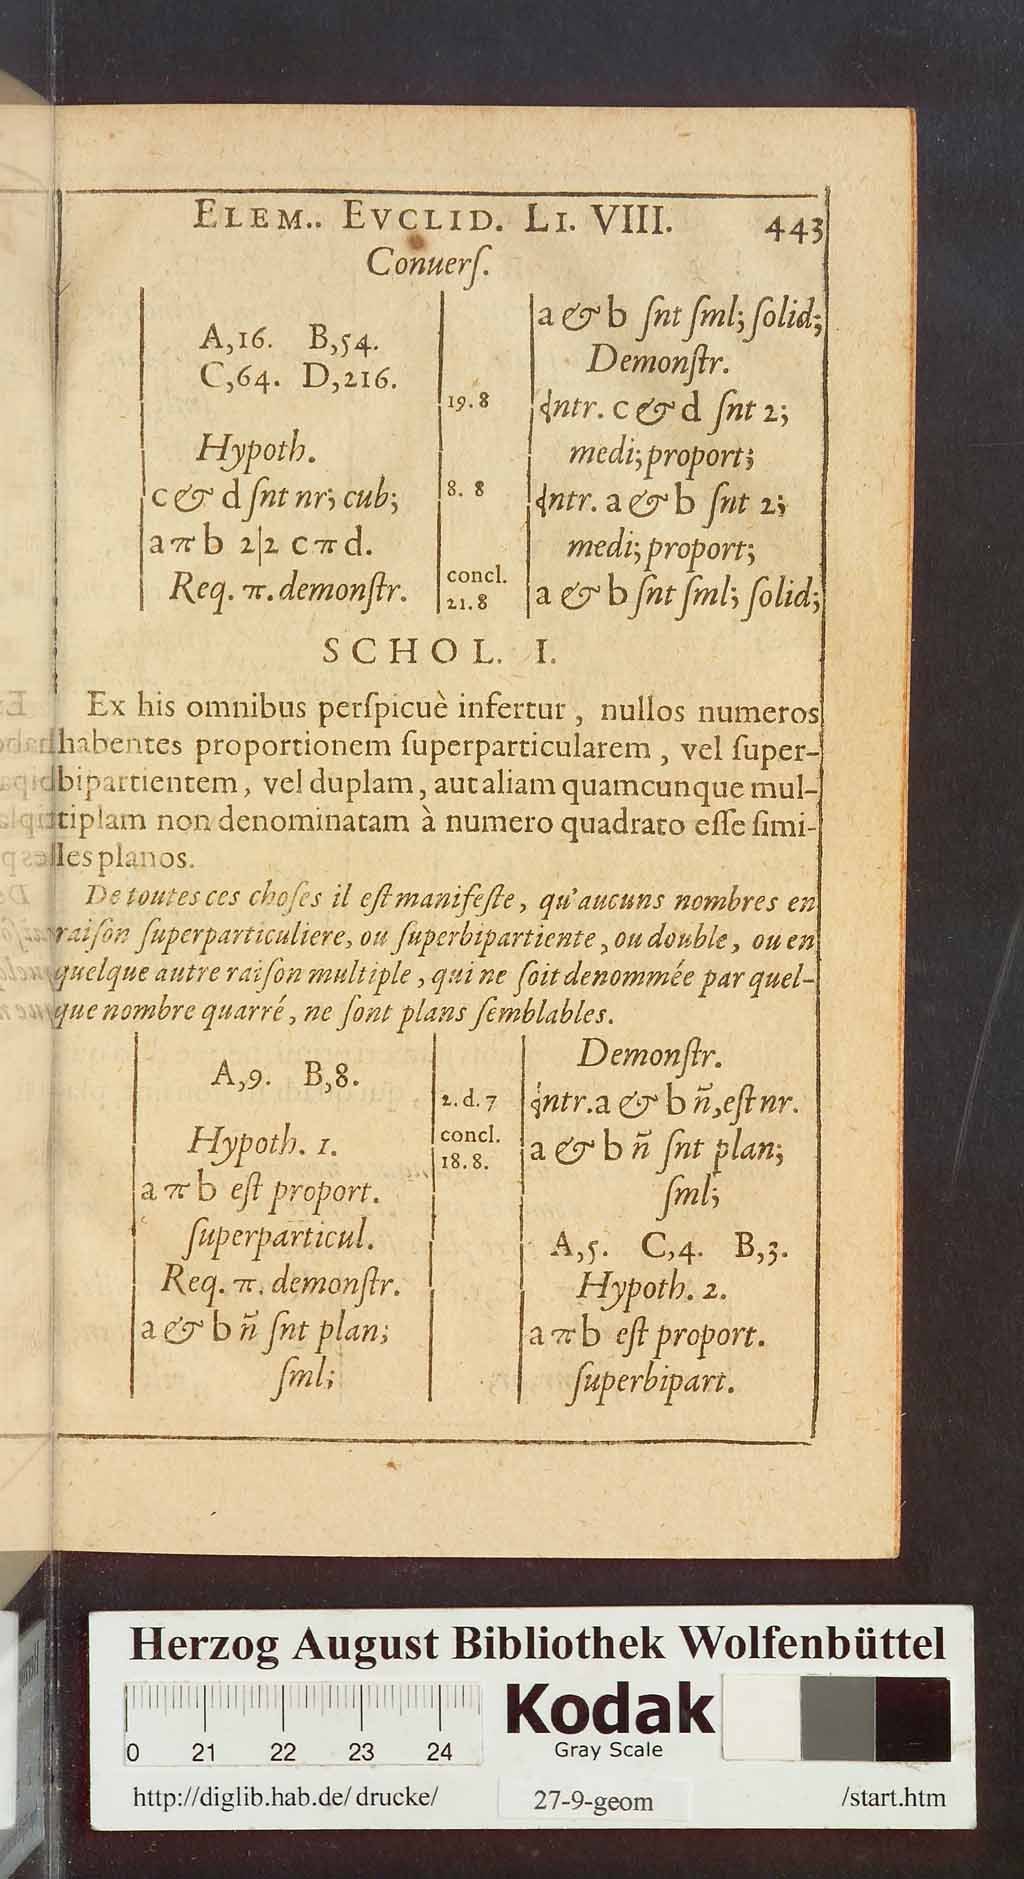 ELEM.. EVCLID. LI. VIII. 443
Conuerſ.
A,16. B,54.
C,64. D,216.
Hypoth.
c & d ſnt nr; cub;
a π b 2|2 c π d.
Req. π. demonſtr.
19. 8
8. 8
concl.
21. 8
a & b ſnt ſml; ſolid;
Demonſtr.
Intr. c & d ſnt 2;
medi; proport;
Intr. a & b ſnt 2;
medi; proport;
a & b ſnt ſml; ſolid;
SCHOL. I.
Ex his omnibus perſpicuè infertur, nullos numeros
habentes proportionem ſuperparticularem, vel ſuper-
bipartientem, vel duplam, aut aliam quamcunque mul-
tiplam non denominatam à numero quadrato eſſe ſimi-
les planos.
De toutes ces choſes il eſt manifeſte, qu'aucuns nombres en
raiſon ſuperparticuliere, ou ſuperbipartiente, ou double, ou en
quelque autre raiſon multiple, qui ne ſoit denommée par quel-
que nombre quarré, ne ſont plans ſemblables.
A,9. B,8.
Hypoth. 1.
a π b eſt proport.
ſuperparticul.
Req. π. demonſtr.
a & b ñ ſnt plan;
ſml;
2. d. 7
concl.
18. 8.
Demonſtr.
Intr. a & b ñ, eſt nr.
a & b ñ ſnt plan;
ſml;
A,5. C,4. B,3.
Hypoth. 2.
a π b eſt proport.
ſuperbipart.
Herzog August Bibliothek Wolfenbüttel
0 21 22 23 24
Kodak
Gray Scale
http://diglib.hab.de/ drucke/ 27-9-geom /start.htm